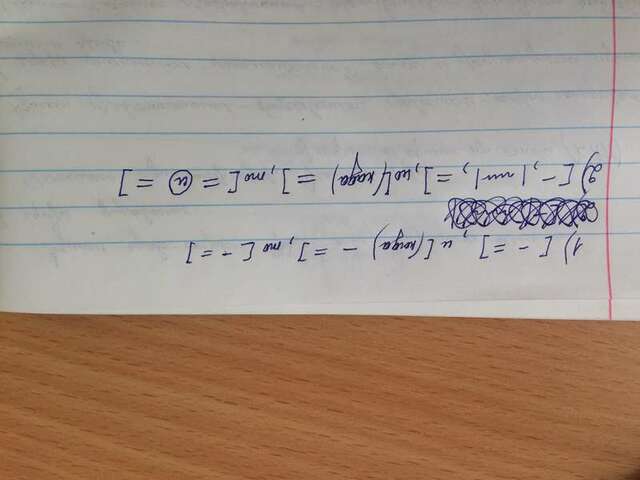 1) [ - = ], и [(когда) - = ], то [ - = ]
2) [ -, | пп |, = ], но [(когда) = ], то [ = и = ]